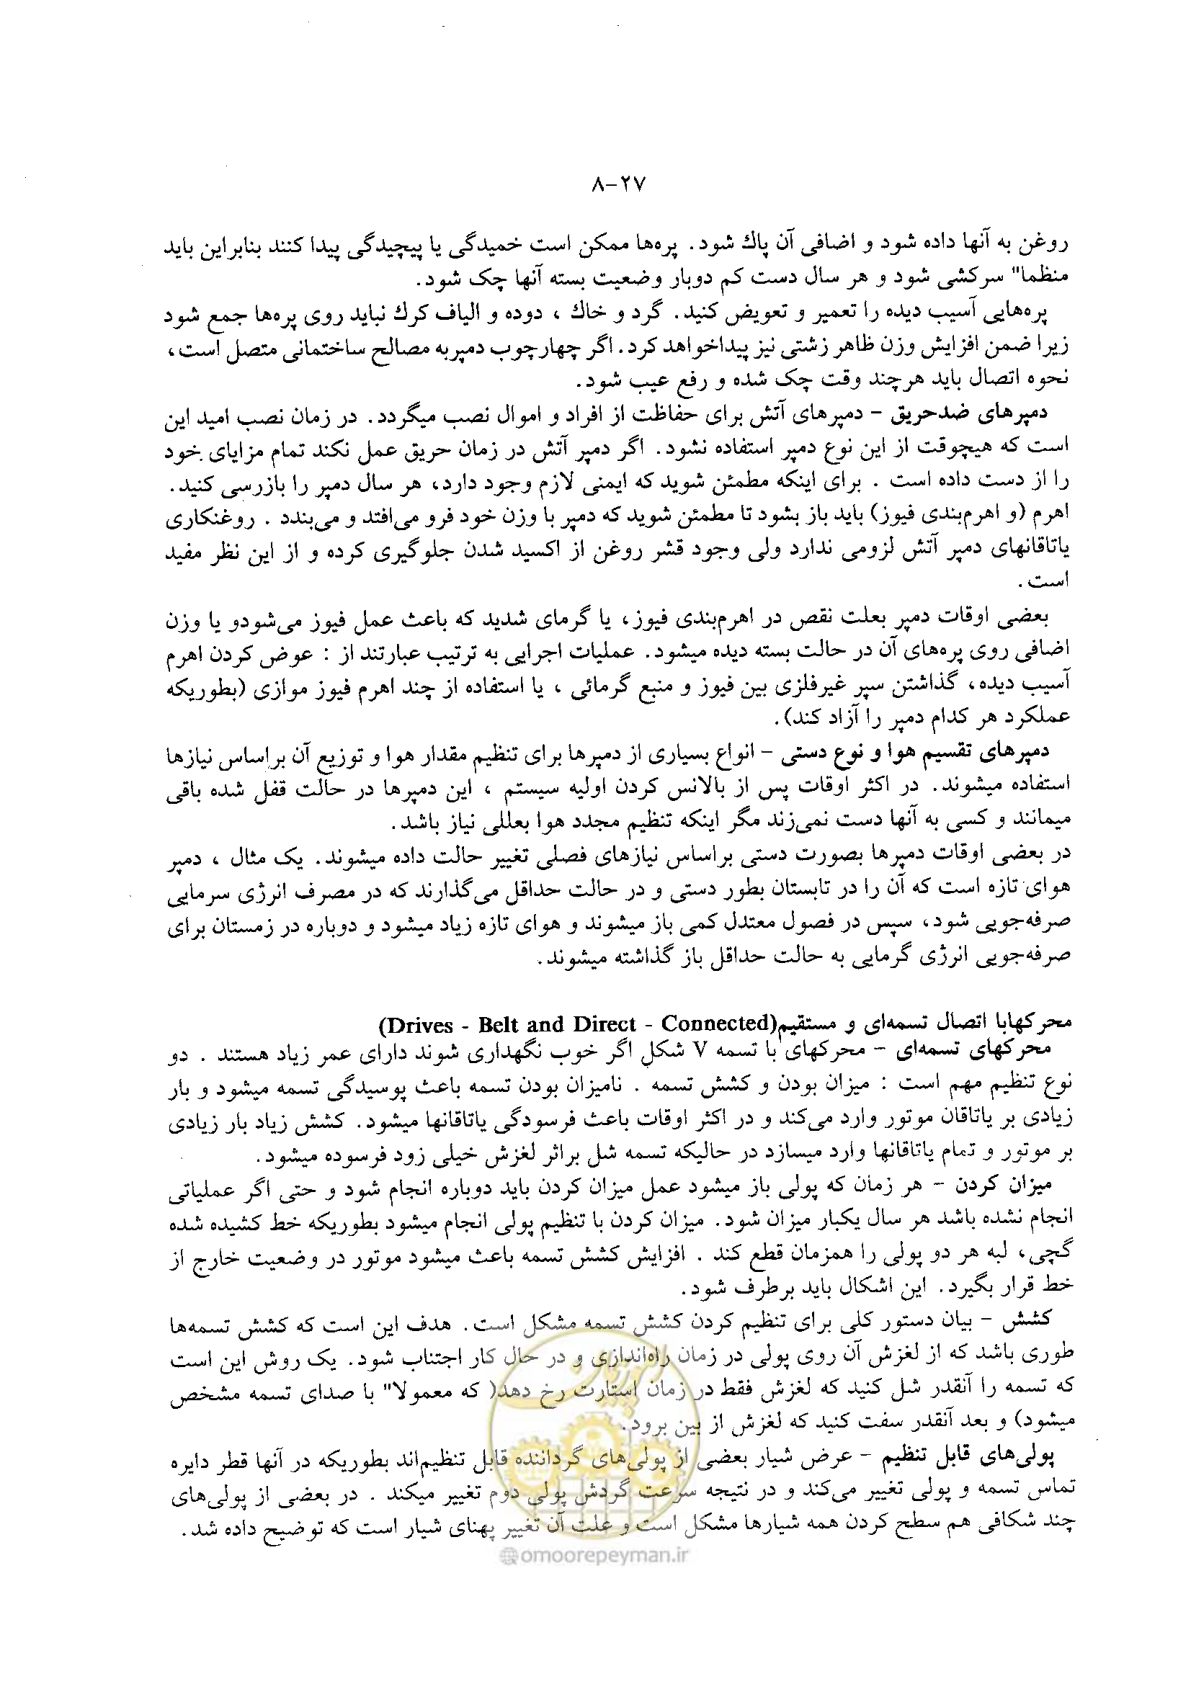 ۸-۲۷
روغن به آنها داده شود و اضافی آن پاك شود. پره‌ها ممکن است خمیدگی یا پیچیدگی پیدا کنند بنابراین باید
منظما" سرکشی شود و هر سال دست کم دوبار وضعیت بسته آنها چک شود.
پره‌هایی آسیب دیده را تعمیر و تعویض کنید. گرد و خاك ، دوده و الیاف کرك نباید روی پره‌ها جمع شود
زیرا ضمن افزایش وزن ظاهر زشتی نیز پیداخواهد کرد. اگر چهارچوب دمپربه مصالح ساختمانی متصل است،
نحوه اتصال باید هرچند وقت چک شده و رفع عیب شود.
دمپرهای ضدحریق - دمپرهای آتش برای حفاظت از افراد و اموال نصب میگردد. در زمان نصب امید این
است که هیچوقت از این نوع دمپر استفاده نشود. اگر دمپر آتش در زمان حریق عمل نکند تمام مزایای خود
را از دست داده است . برای اینکه مطمئن شوید که ایمنی لازم وجود دارد، هر سال دمپر را بازرسی کنید.
اهرم (و اهرم‌بندی فیوز) باید باز بشود تا مطمئن شوید که دمپر با وزن خود فرو می‌افتد و می‌بندد . روغنکاری
یاتاقانهای دمپر آتش لزومی ندارد ولی وجود قشر روغن از اکسید شدن جلوگیری کرده و از این نظر مفید
است.
بعضی اوقات دمپر بعلت نقص در اهرم‌بندی فیوز، یا گرمای شدید که باعث عمل فیوز می‌شودو یا وزن
اضافی روی پره‌های آن در حالت بسته دیده میشود. عملیات اجرایی به ترتیب عبارتند از : عوض کردن اهرم
آسیب دیده، گذاشتن سپر غیرفلزی بین فیوز و منبع گرمائی ، یا استفاده از چند اهرم فیوز موازی (بطوریکه
عملکرد هر کدام دمپر را آزاد کند).
دمپرهای تقسیم هوا و نوع دستی - انواع بسیاری از دمپرها برای تنظیم مقدار هوا و توزیع آن براساس نیازها
استفاده میشوند. در اکثر اوقات پس از بالانس کردن اولیه سیستم ، این دمپرها در حالت قفل شده باقی
میمانند و کسی به آنها دست نمی‌زند مگر اینکه تنظیم مجدد هوا بعللی نیاز باشد.
در بعضی اوقات دمپرها بصورت دستی براساس نیازهای فصلی تغییر حالت داده میشوند. یک مثال ، دمپر
هوای تازه است که آن را در تابستان بطور دستی و در حالت حداقل می‌گذارند که در مصرف انرژی سرمایی
صرفه‌جویی شود، سپس در فصول معتدل کمی باز میشوند و هوای تازه زیاد میشود و دوباره در زمستان برای
صرفه‌جویی انرژی گرمایی به حالت حداقل باز گذاشته میشوند.
محرکهابا اتصال تسمه‌ای و مستقیم(Drives - Belt and Direct - Connected)
محرکهای تسمه‌ای - محرکهای با تسمه V شکل اگر خوب نگهداری شوند دارای عمر زیاد هستند . دو
نوع تنظیم مهم است : میزان بودن و کشش تسمه . نامیزان بودن تسمه باعث پوسیدگی تسمه میشود و بار
زیادی بر یاتاقان موتور وارد می‌کند و در اکثر اوقات باعث فرسودگی یاتاقانها میشود. کشش زیاد بار زیادی
بر موتور و تمام یاتاقانها وارد میسازد در حالیکه تسمه شل براثر لغزش خیلی زود فرسوده میشود.
میزان کردن - هر زمان که پولی باز میشود عمل میزان کردن باید دوباره انجام شود و حتی اگر عملیاتی
انجام نشده باشد هر سال یکبار میزان شود. میزان کردن با تنظیم پولی انجام میشود بطوریکه خط کشیده شده
گچی، لبه هر دو پولی را همزمان قطع کند . افزایش کشش تسمه باعث میشود موتور در وضعیت خارج از
خط قرار بگیرد. این اشکال باید برطرف شود.
کشش - بیان دستور کلی برای تنظیم کردن کشش تسمه مشکل است. هدف این است که کشش تسمه‌ها
طوری باشد که از لغزش آن روی پولی در زمان راه‌اندازی و در حال کار اجتناب شود. یک روش این است
که تسمه را آنقدر شل کنید که لغزش فقط در زمان استارت رخ دهد( که معمولا" با صدای تسمه مشخص
میشود) و بعد آنقدر سفت کنید که لغزش از بین برود.
پولی‌های قابل تنظیم - عرض شیار بعضی از پولی‌های گرداننده قابل تنظیم‌اند بطوریکه در آنها قطر دایره
تماس تسمه و پولی تغییر می‌کند و در نتیجه سرعت گردش پولی دوم تغییر میکند . در بعضی از پولی‌های
چند شکافی هم سطح کردن همه شیارها مشکل است و علت آن تغییر پهنای شیار است که توضیح داده شد.
@omoorepeyman.ir